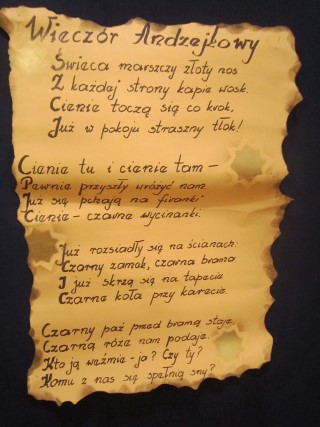 Wieczór Andrzejkowy
Świeca marszczy złoty nos
Z każdej strony kapie wosk.
Cienie toczą się co krok,
Już w pokoju straszny tłok!
Cienie tu i cienie tam -
Pewnie przyszły wróżyć nam.
Już się pchają na firanki
Cienie - czarne wycinanki.
Już rozsiadły się na ścianach:
Czarny zamek, czarna brama.
I już skrzą się na tapecie
Czarne koła przy karecie.
Czarny paź przed bramą staje,
Czarną różę nam podaje.
Kto ją weźmie - ja? Czy ty?
Komu z nas się spełnią sny?